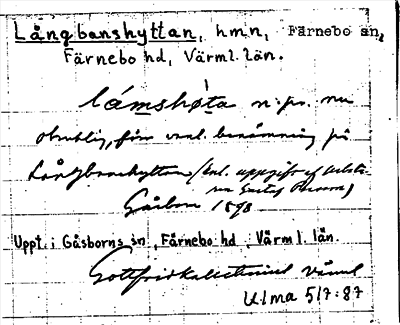 Långbanshyttan, hmn, Färnebo sn,
Färnebo hd, Värml. län.
lámshøta n. pr. nu
obruklig, förr vanl. benämning på
Långbanshyttan (enl. uppgift af
Gustaf
Gåsborn 1898
Uppt. i Gåsborns sn, Färnebo hd, Värml. län.
Ulma 517:87